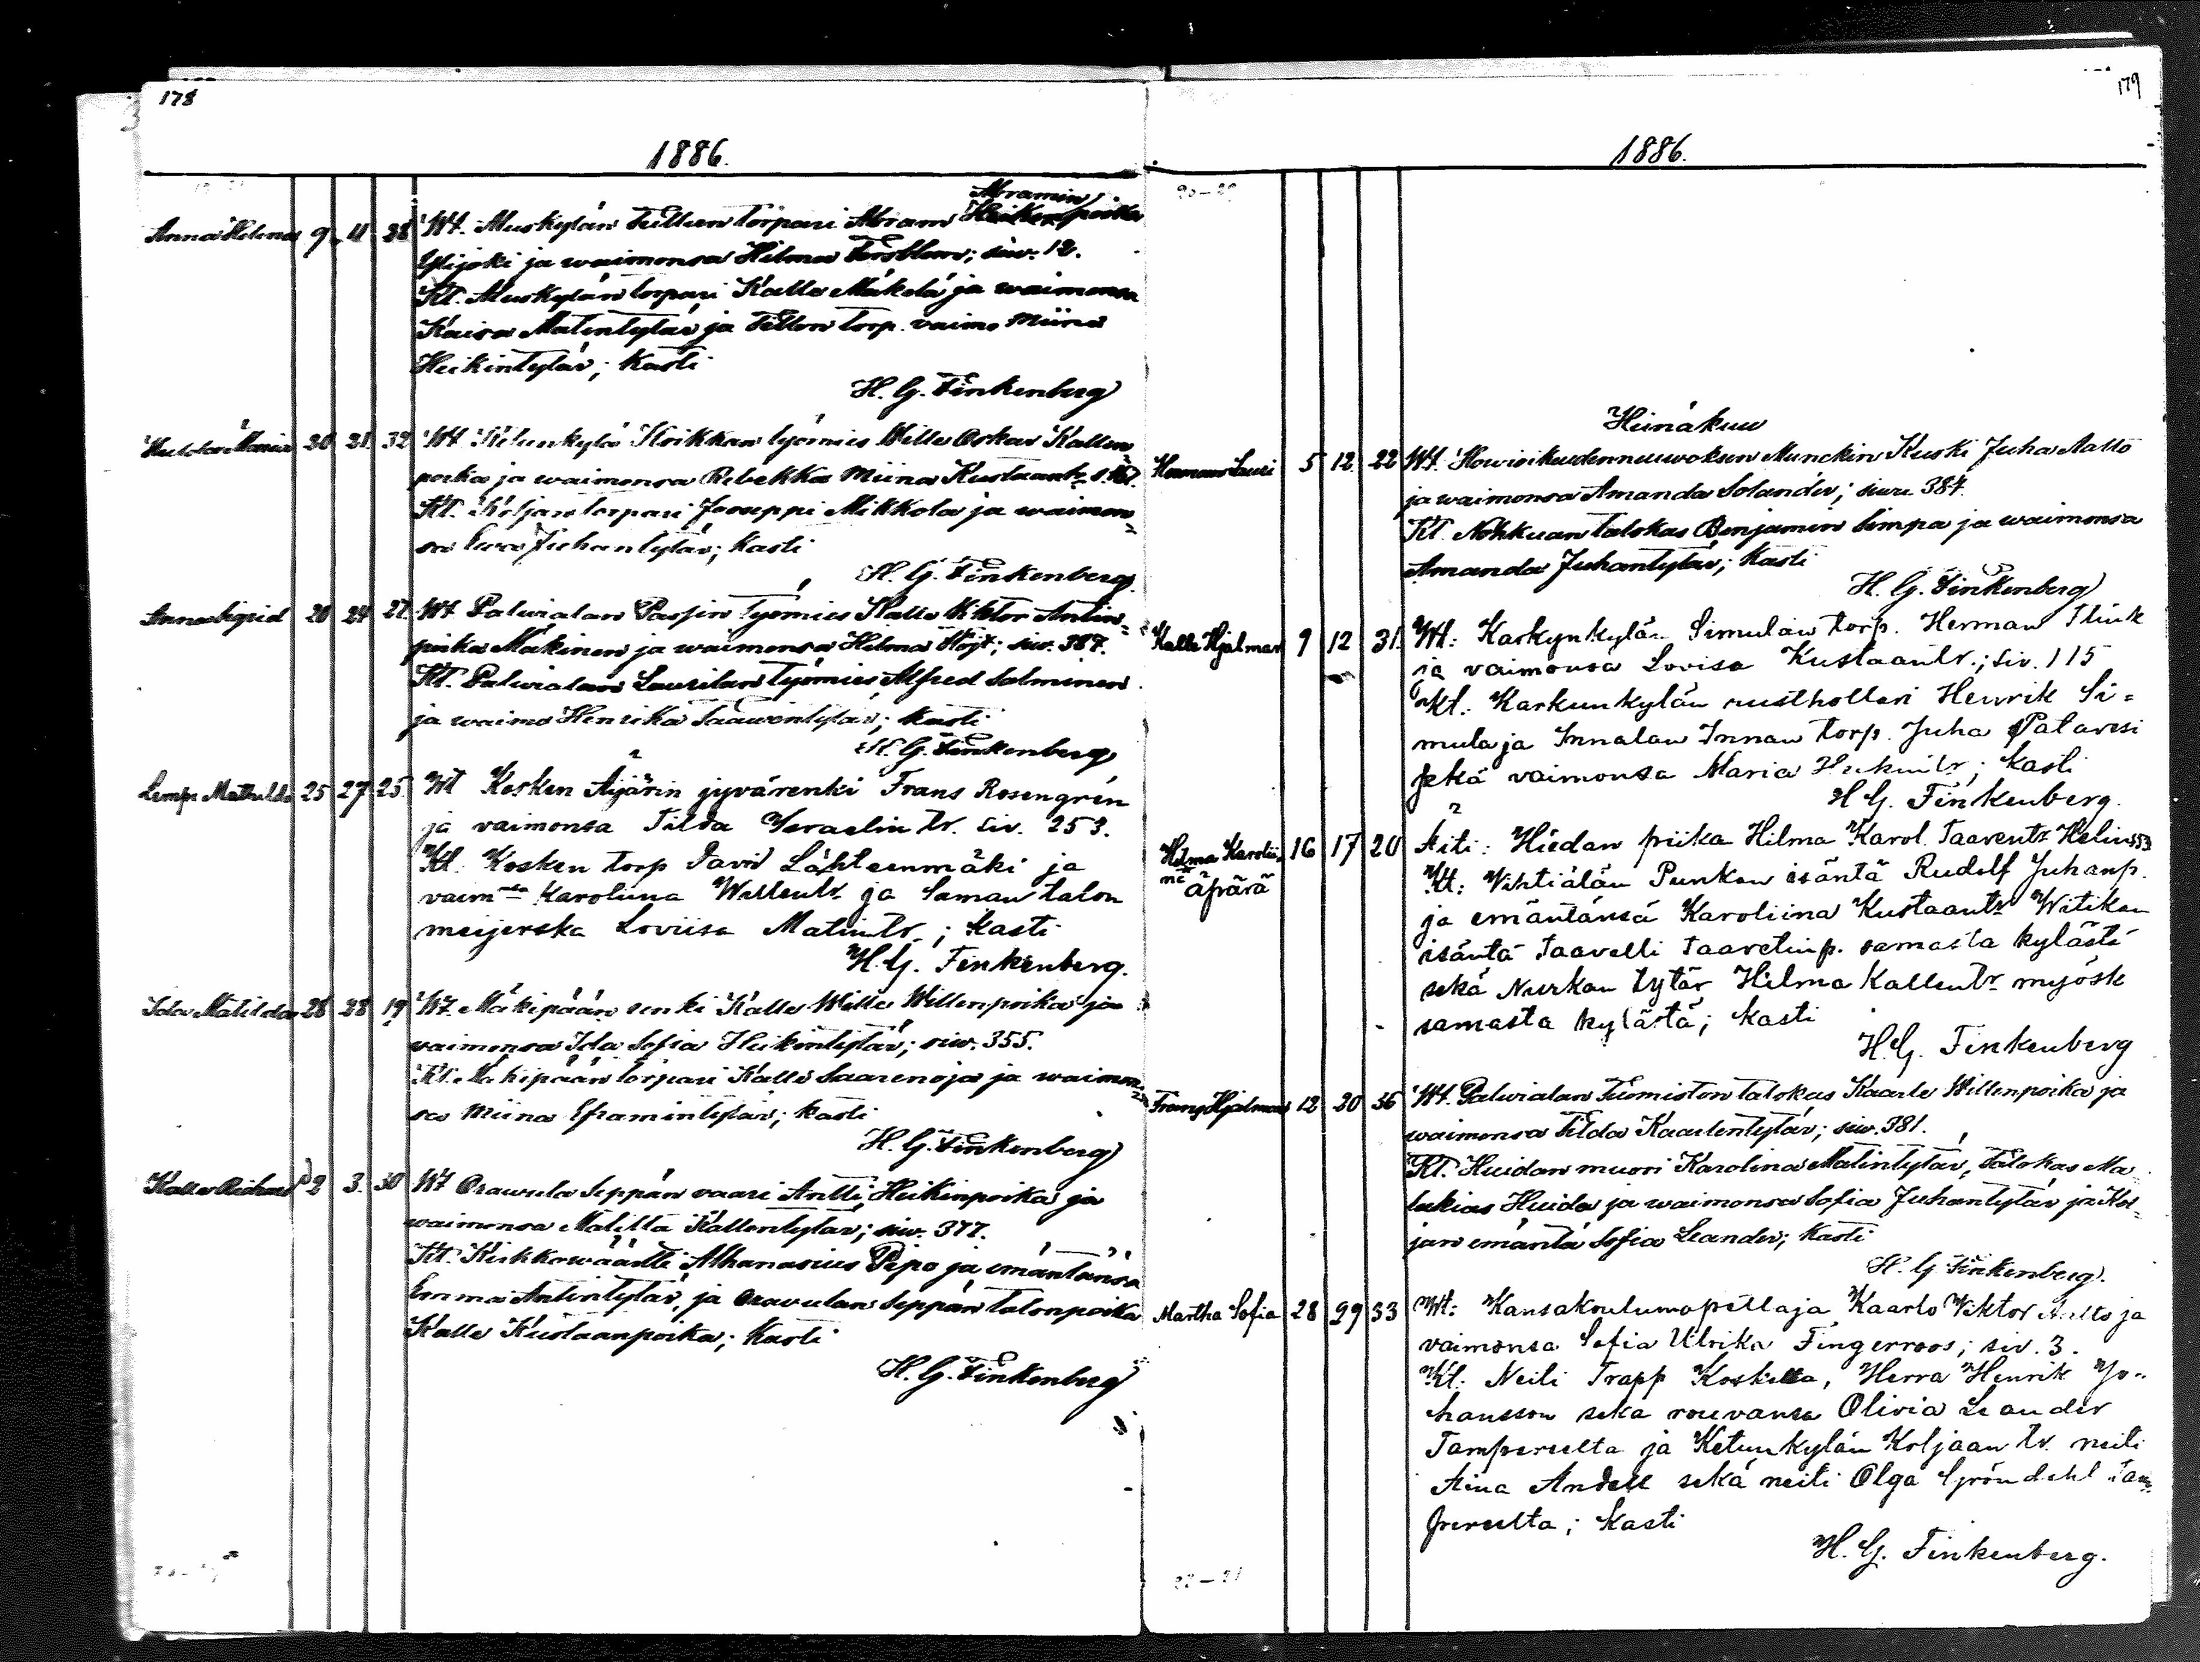 178
1886.
Abramin
Anna Helena 9 11 38 Wt. Muskylän Tillun torpari Abram poika
Ylijoki ja waimonsa Hilma Forsblom; siw. 12.
Kt. Muskylän torpari Kalle Mäkelä ja waimonsa
Kaisa Matintytär ja Tillon torp. vaimo Miina
Heikintytär; kasti
H. G. Finkenberg
Hulda Maria 20 21 32 Wt Ketunkylä Koikkan työmies Wille Oskar Kallen
poika ja waimonsa Rebekka Miina Kustaantr.
Kt. Koljan torpari Jooseppi Mikkola ja waimon
sa Eewa Juhantytär; kasti
H. G. Finkenberg
Anna Sigrid 20 24 27 Wt Palvialan Passin työmies Kalle Viktor Antin
poika Mäkinen ja waimonsa Hilma Höijt; siw. 387.
Kt. Palvialan Laurilan työmies Alfred Salminen
ja waimo Henrika Taavintytär; kasti
H. G. Finkenberg
Lempi Mathilda 25 27 25 Wt Kosken Äijärin jyvärenki Frans Rosengrén
ja vaimonsa Tilda Israelin tr. siv. 253.
Kt. Kosken torp David Lähteenmäki ja
vaimonsa Karoliina Willentr. ja Saman talon
meijerska Loviisa Matintr.; kasti
H. G. Finkenberg.
Ida Matilda 28 28 19 Wt. Mäkipään renki Kalle Wille Willenpoika ja
waimonsa Ida Sofia Heikintytär; siw. 355.
Kt. Mäkipään torpari Kalle Saarenoja ja waimon
sa Miina Eframintytär; kasti
H. G. Finkenberg
Kalle Richard 2 3. 30 Wt Orawula Seppän vaari Antti Heikinpoika ja
waimonsa Matilta Kallentytär; siw. 377.
Kt. Kirkkowäärtti Athanasius Pipo ja emäntänsä
Emma Antintytär, ja Oravulan Seppän talonpoika
Kalle Kustaanpoika; kasti
H. G. Finkenberg
179
1886.
Heinäkuu
Herman Lauri 5 12 22 Wt. Howioikeudenneuwoksen Munckin Kuski Juha Aalto
ja waimonsa Amanda Solander; siwu 384.
Kt. Nohkuan talokas Benjamin Simpa ja waimonsa
Amanda Juhantytär; kasti
H. G. Finkenberg
Kalle Hjalmar 9 12 31. Wt: Karkunkylän Simulan torp. Herman Flink
ja vaimonsa Lovisa Kustaantr.; siv. 115
Kt. Karkunkylän rusthollari Henrik Si-
mula ja Innalan Innan torp. Juha Palavesi
sekä vaimonsa Maria; kasti
H G. Finkenberg.
Hilma Karolii- 16 17 20 Äiti: Hiedan piika Hilma Karol. Taaventr Helin 553
na Kt: Vihtiälän Punkon isäntä Rudolf Juhanp.
äpärä ja emäntänsä Karoliina Kustaantr Witikan
isäntä Taavetti Taavetinp. samasta kylästä
sekä Nurkan tytär Hilma Kallentr. myösk
samasta kylästä; kasti
H. G. Finkenberg
Frans Hjalmar 12 30 36 Wt. Palvialan Tuomiston talokas Kaarle Willenpoika ja
waimonsa Tilda Kaarlentytär; siw. 381.
Kt. Huidan muori Karolina Matintytär, talokas Ma
lakias Huida ja waimonsa Sofia Juhantytär ja Kol-
jan emäntä Sofia Leander; kasti
H. G. Finkenberg.
Martha Sofia 28 29 33 Wt: Kansakoulunopettaja Kaarlo Viktor Aalto ja
vaimonsa Sofia Ulrika Fingerroos; siv. 3.
Kt: Neiti Trapp Koskelta, Herra Henrik Jo-
hansson sekä rouvansa Olivia Leander
Tampereelta ja Ketunkylän Koljaan tr. neiti
Aina Andell sekä neiti Olga Gröndahl Tam-
pereelta; kasti
H. G. Finkenberg.